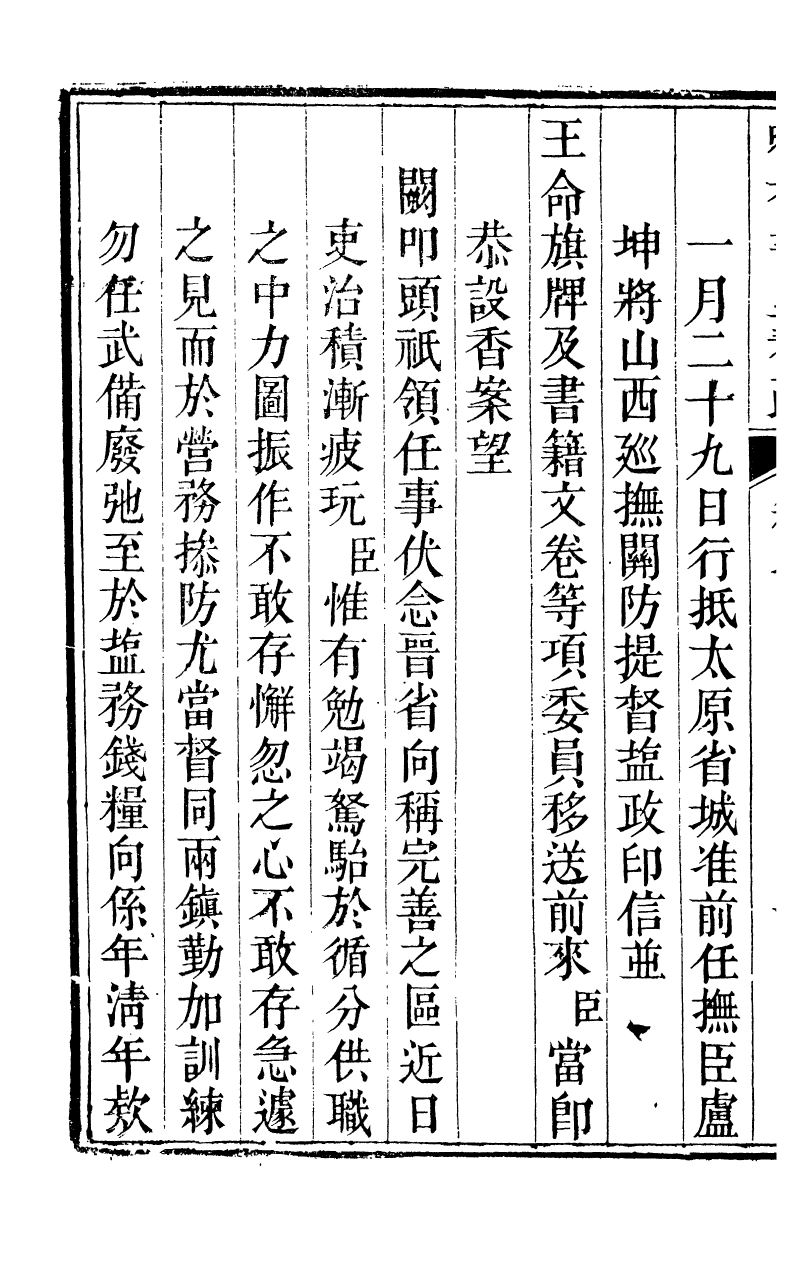 一月二十九日行抵太原省城准前任撫臣盧
坤將山西廵撫關防提督塩政印信並
王命旗牌及書籍文卷等項委員移送前來臣當卽
恭設香案望
闕叩頭祗領任事伏念晉省向稱完善之區近日
吏治積漸疲玩臣惟有勉竭駑駘於循分供職
之中力圖振作不敢存懈忽之心不敢存急遽
之見而於營務捺防尤當督同兩鎮勤加訓練
勿任武備廢弛至於塩務錢糧向係年淸年欵